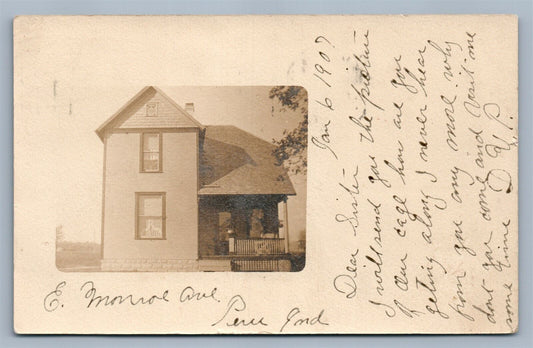 Jan 6 1907
Dear Sister
I will send you the picture
of our cage how are you
geting along I never hear
from you any more why
dont you come and visit me
some time D. Y. P.
E. Monroe Ave.
Peru Ind